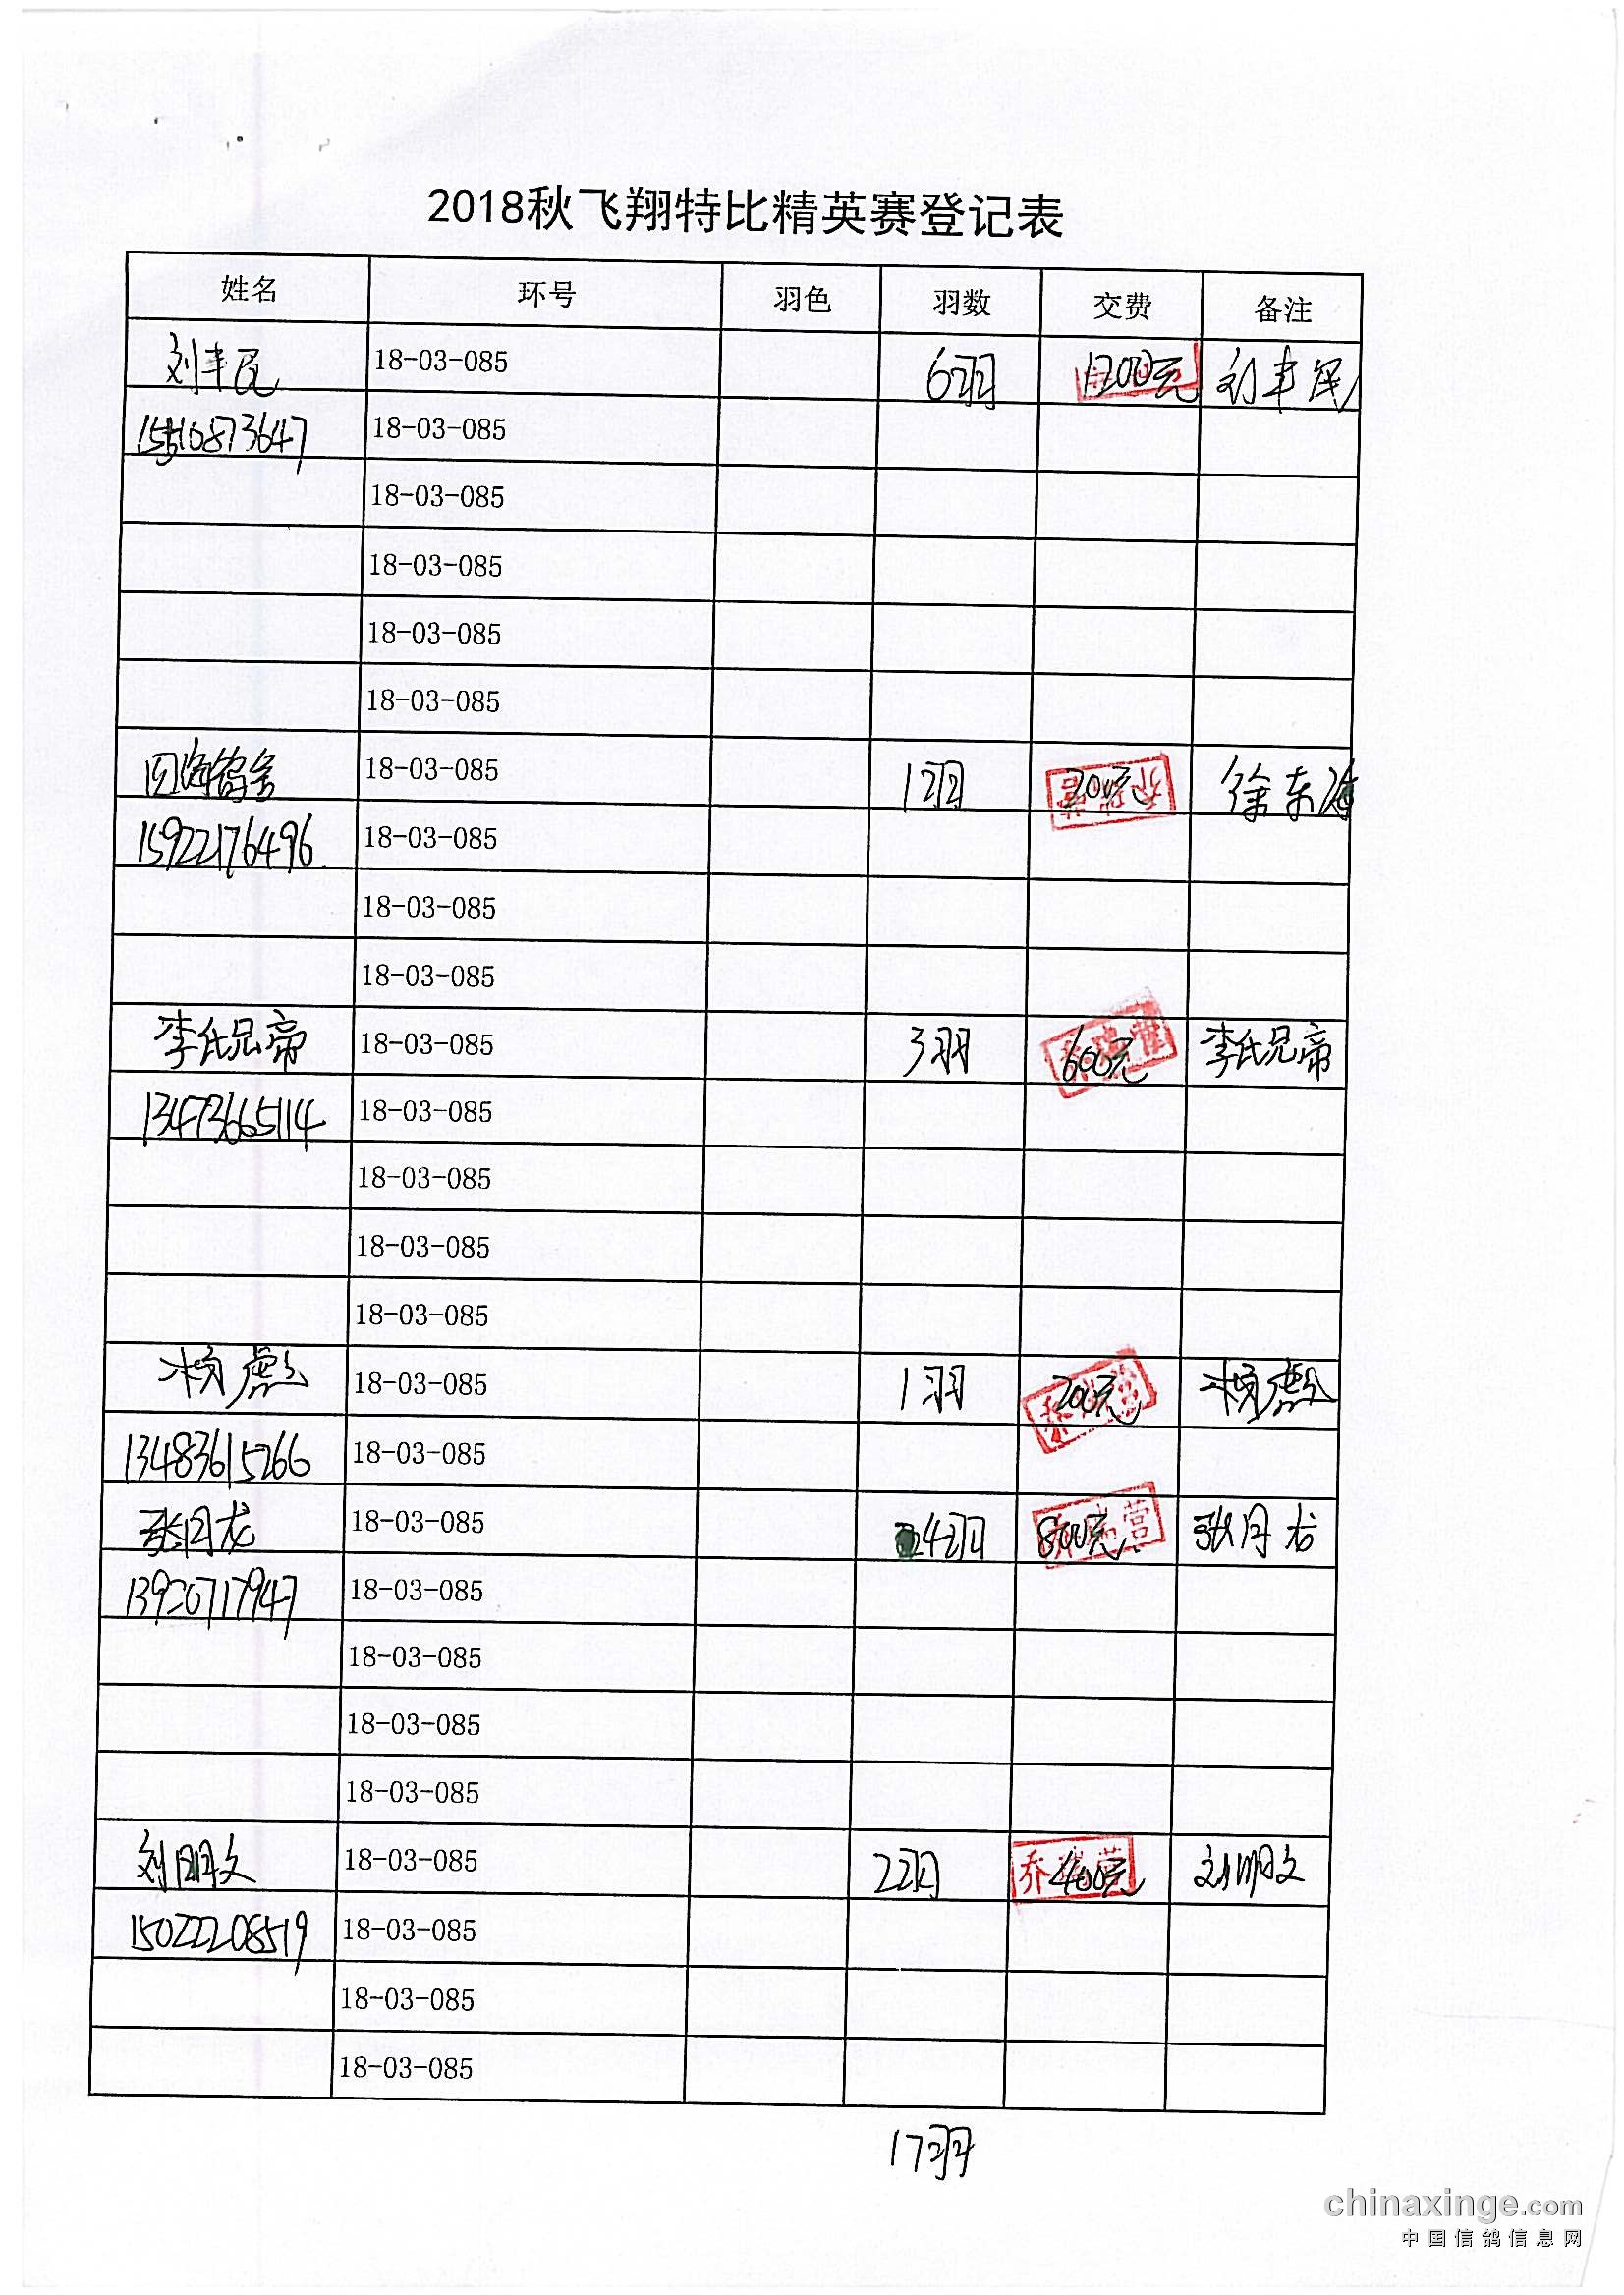 2018秋飞翔特比精英赛登记表
姓名 环号 羽色 羽数 交费 备注
刘丰民 18-03-085 6羽 1200元 刘丰民
18-03-085
18-03-085
18-03-085
18-03-085
18-03-085
四海鸽舍 18-03-085 1羽 200元 徐东海
15922176496 18-03-085
18-03-085
18-03-085
李氏兄帝 18-03-085 3羽 600元 李氏兄帝
13473665114 18-03-085
18-03-085
18-03-085
18-03-085
18-03-085 1羽 200元
13483615266 18-03-085
张月龙 18-03-085 4羽 800元 张月龙
13920717947 18-03-085
18-03-085
18-03-085
18-03-085
刘明文 18-03-085 2羽 400元 刘明文
15022208519 18-03-085
18-03-085
18-03-085
17羽
chinaxinge.com
中国信鸽信息网